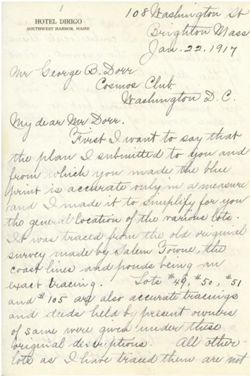 HOTEL DIRIGO
SOUTHWEST HARBOR, MAINE
108 Washington St
Brighton Mass
Jan. 22. 1917
Mr George B. Dorr
Cosmos Club
Washington D.C.
My dear Mr Dorr.
First I want to say that
the plan I submitted to you and
from which you made the blue
print is accurate only in a measure
and I made it to simplify for you
the general location of the various lots.
It was traced from the old original
survey made by Salem Towne, the
coast lines and ponds being an
exact tracing. Lots #49, #50, #51
and #105 are also accurate tracings
and deeds held by present owners
of same were given under these
original descriptions. All other
lots as I have traced them are not